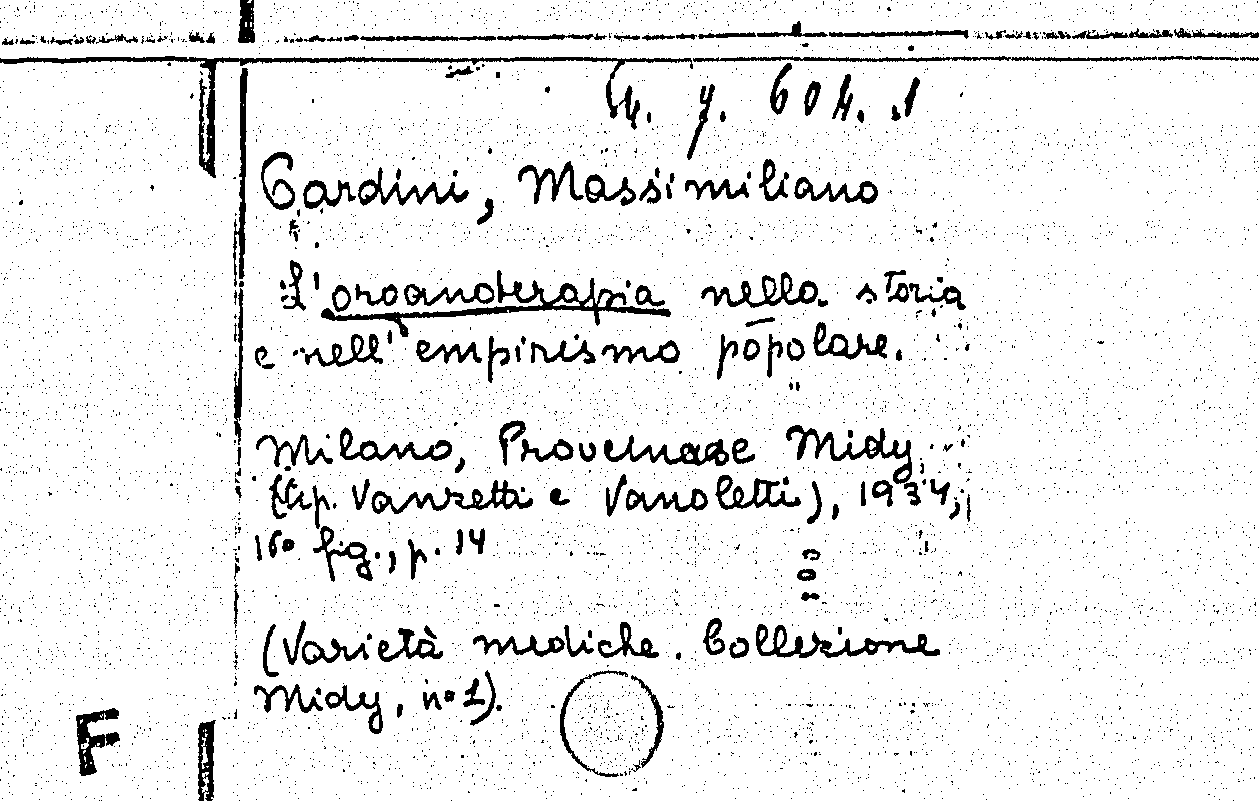 G. y. 604. 1
Cardini, Massimiliano
L'organoterapia nella storia
e nell'empirismo popolare.
Milano, Proveinase Midy
(tip. Vanzetti e Vanoletti), 1934,
16º fig., p. 14
(Varietà mediche. Collezione
Midy, nº 1).
F